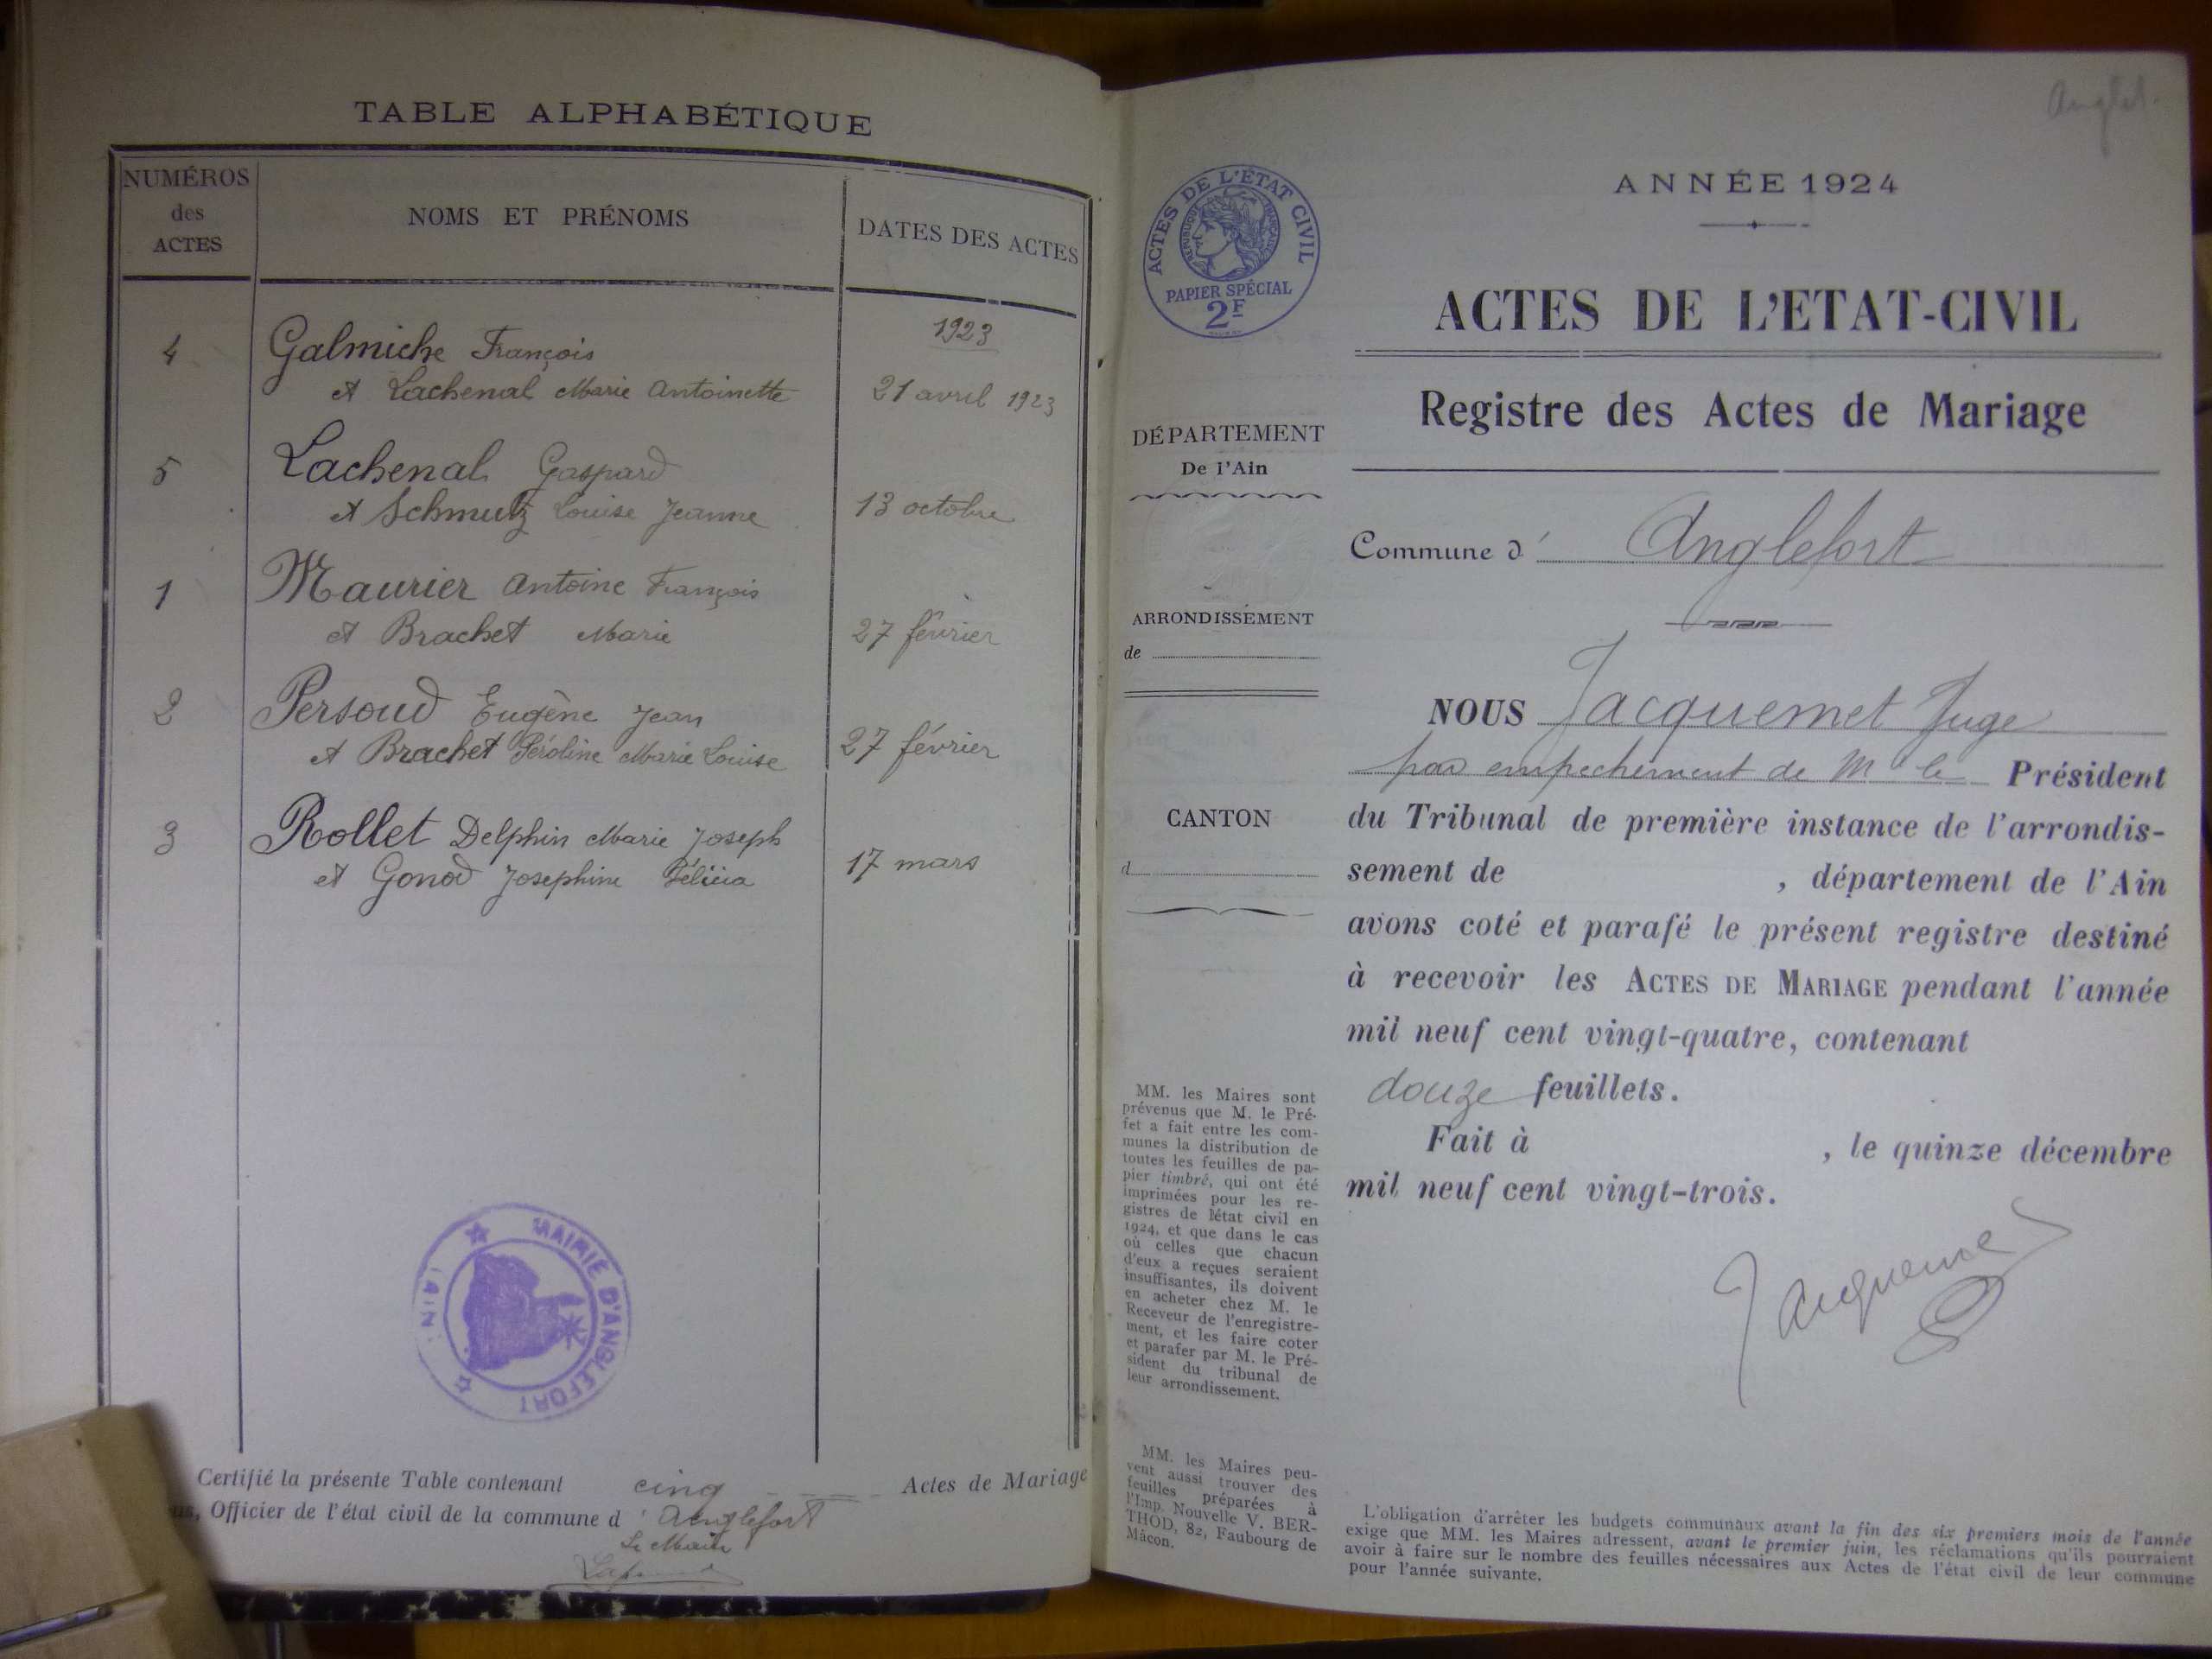 TABLE ALPHABÉTIQUE
NUMÉROS
des
ACTES
NOMS ET PRÉNOMS
DATES DES ACTES
1923
4 Galmiche François
et Lachenal Marie Antoinette 21 avril 1923
5 Lachenal Gaspard
et Schmutz Louise Jeanne 13 octobre
1 Maurier Antoine François
et Brachet Marie 27 février
2 Persoud Eugène Jean
et Brachet Péroline Marie Louise 27 février
3 Rollet Delphin Marie Joseph
et Gonod Josephine Félicia 17 mars
MAIRIE D'ANGLEFORT
(AIN)
Certifié la présente Table contenant cinq Actes de Mariage
us, Officier de l'état civil de la commune d' Anglefort
Le Maire
Anglef.
ANNÉE 1924
ACTES DE L'ÉTAT CIVIL
RÉPUBLIQUE FRANÇAISE
PAPIER SPÉCIAL
2F
ACTES DE L'ETAT-CIVIL
Registre des Actes de Mariage
DÉPARTEMENT
De l'Ain
Commune d' Anglefort
ARRONDISSEMENT
de
CANTON
d
NOUS Jacquemet Juge
par empechement de Mr le Président
du Tribunal de première instance de l'arrondis-
sement de , département de l'Ain
avons coté et parafé le présent registre destiné
à recevoir les ACTES DE MARIAGE pendant l'année
mil neuf cent vingt-quatre, contenant
douze feuillets.
Fait à , le quinze décembre
mil neuf cent vingt-trois.
Jacquemet
MM. les Maires sont
prévenus que M. le Pré-
fet a fait entre les com-
munes la distribution de
toutes les feuilles de pa-
pier timbré, qui ont été
imprimées pour les re-
gistres de l'état civil en
1924, et que dans le cas
où celles que chacun
d'eux a reçues seraient
insuffisantes, ils doivent
en acheter chez M. le
Receveur de l'enregistre-
ment, et les faire coter
et parafer par M. le Pré-
sident du tribunal de
leur arrondissement.
MM. les Maires peu-
vent aussi trouver des
feuilles préparées à
l'Imp. Nouvelle V. BER-
THOD, 82, Faubourg de
Mâcon.
L'obligation d'arrêter les budgets communaux avant la fin des six premiers mois de l'année
exige que MM. les Maires adressent, avant le premier juin, les réclamations qu'ils pourraient
avoir à faire sur le nombre des feuilles nécessaires aux Actes de l'état civil de leur commune
pour l'année suivante.